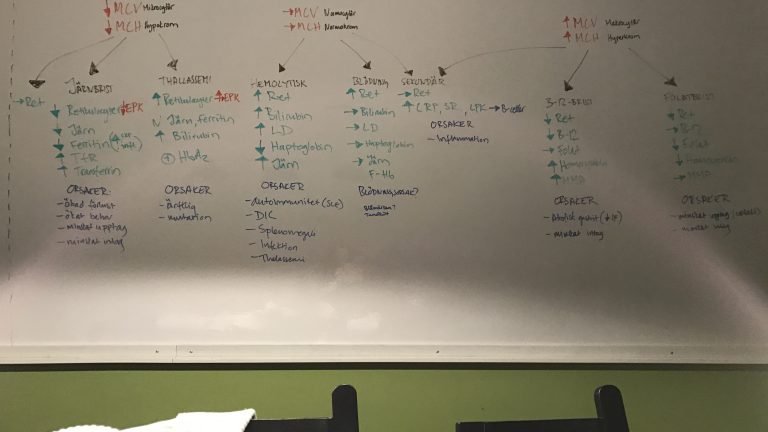 ↓ MCV Mikrocytär
↓ MCH Hypokrom
→ MCV Normocytär
→ MCH Normokrom
↑ MCV Makrocytär
↑ MCH Hyperkrom
→ Ret
JÄRNBRIST
↓ Retikulocyter ↓ EPK
↓ Järn
↓ Ferritin
↑ TfR
↑ Transferrin
ORSAKER:
- ökad förlust
- ökat behov
- minskat upptag
- minskat intag
THALLASSEMI
↑ Retikulocyter ↑ EPK
N Järn, Ferritin
↑ Bilirubin
HbA2
ORSAKER
- Ärftlig
- mutation
HEMOLYTISK
↑ Ret
↑ Bilirubin
↑ LD
↓ Haptoglobin
↑ Järn
ORSAKER
- Autoimmunitet (SLE)
- DIC
- Splenomegali
- Infektion
- Thalassemi
BLÖDNING
↑ Ret
→ Bilirubin
→ LD
→ Haptoglobin
→ Järn
F-Hb
BLÖDNINGSORSAK?
SEKUNDÄR
→ Ret
↑ CRP, SR, LPK → B-celler
ORSAKER
- Inflammation
B-12-BRIST
↓ Ret
↓ B-12
→ Folat
↑ Homocystein
↑ MMA
ORSAKER
- Atrofisk gastrit (↓ IF)
- minskat intag
FOLATBRIST
↓ Ret
→ B-12
↓ Folat
→ MMA
ORSAKER
- minskat upptag
- minskat intag